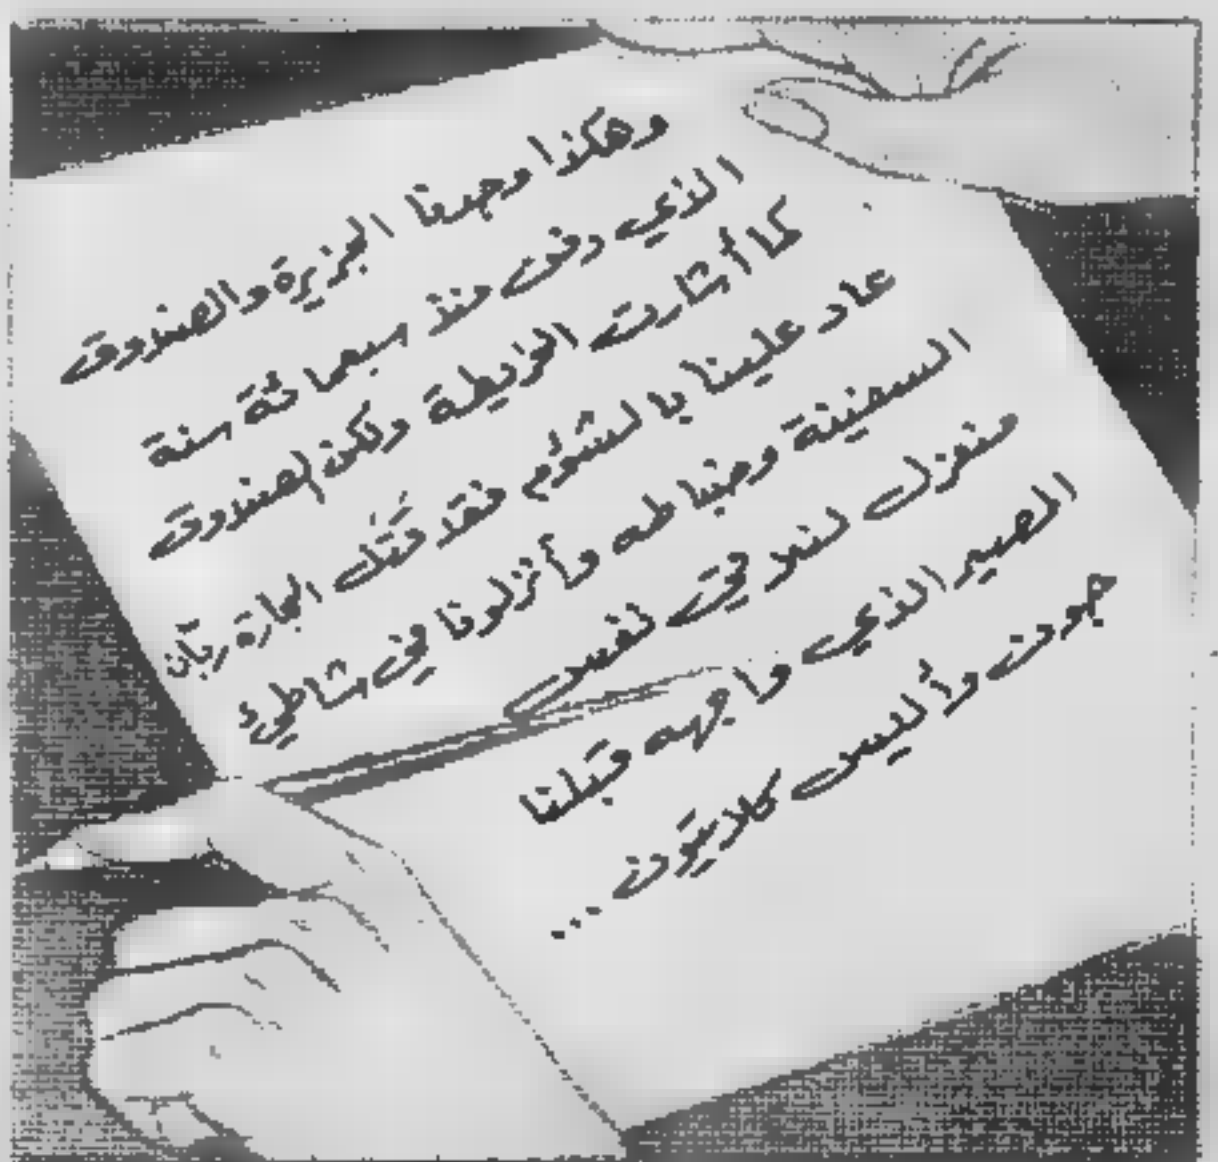 وهكذا وجدنا الجزيرة والصندوق
الذي دفن منذ سبعمائة سنة
كما أشارت الخريطة ولكن الصندوق
عاد علينا بالشؤم فقد قتل البحارة ربّان
السفينة وضباطه وأنزلونا في شاطئ
منعزل لنلاقي نفس
المصير الذي واجهه قبلنا
جون وأليس كلايتون ...